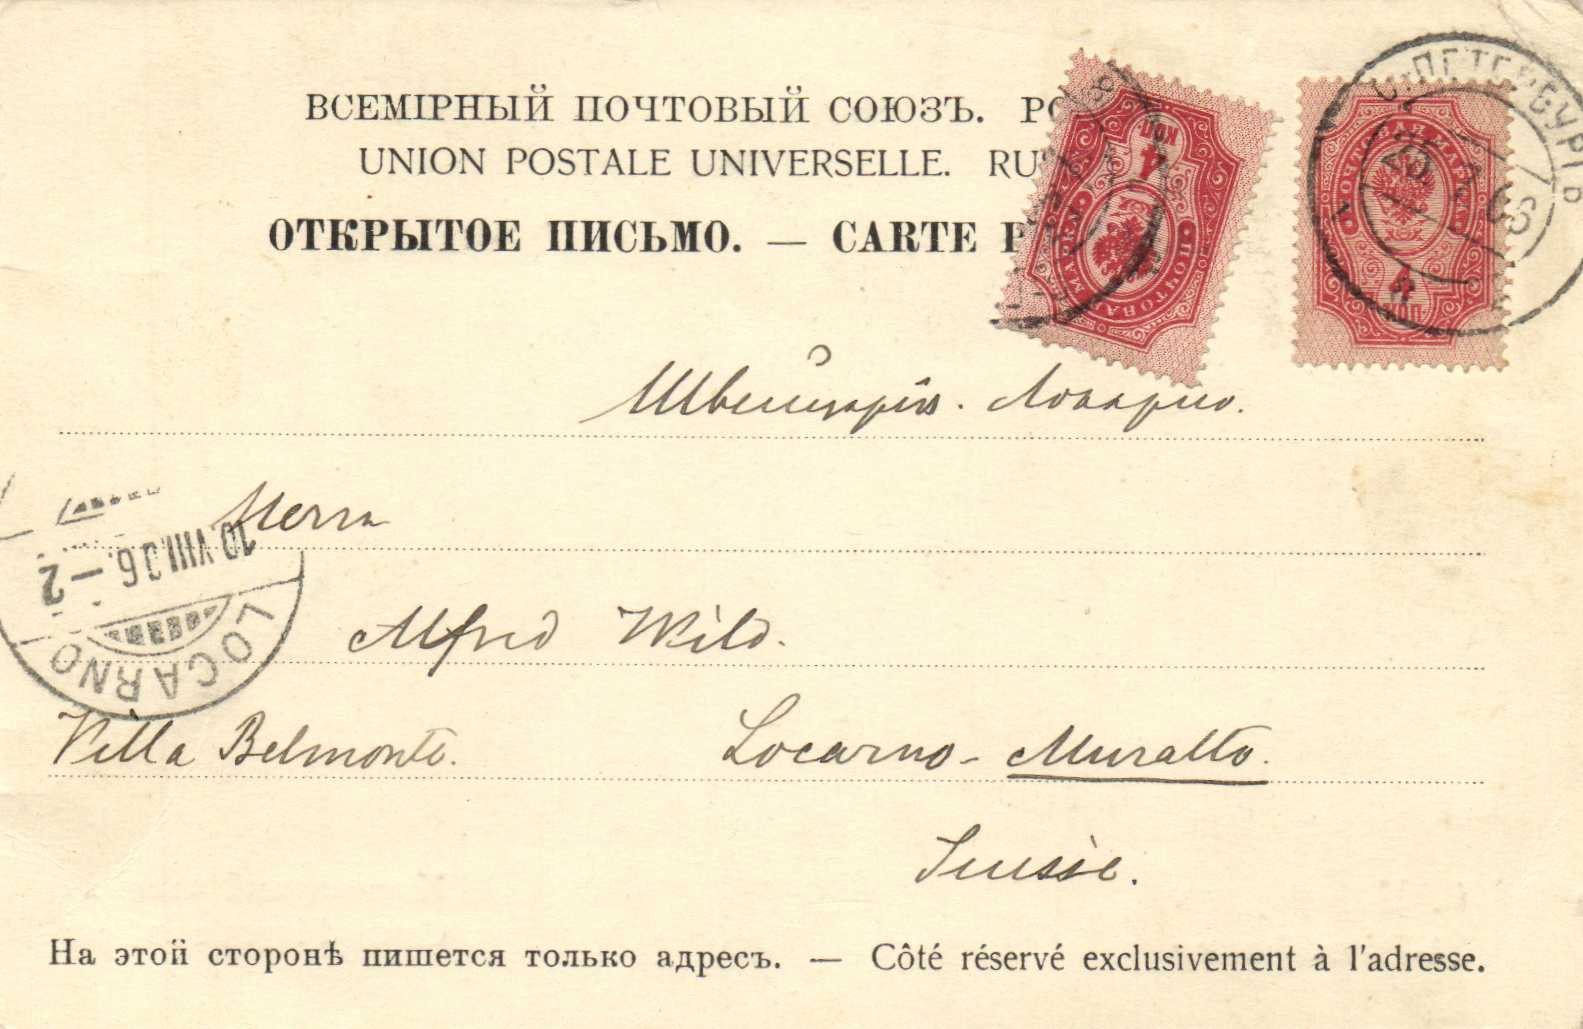 ВСЕМІРНЫЙ ПОЧТОВЫЙ СОЮЗЪ. РО
UNION POSTALE UNIVERSELLE. RUS
ОТКРЫТОЕ ПИСЬМО. — CARTE P
4 КОП
ПОЧТОВАЯ МАРКА
4 КОП
ПОЧТОВАЯ МАРКА
С.ПЕТЕРБУРГЪ
Швейцарія. Локарно.
Herrn
10.VIII.06.–2
LOCARNO
Alfred Wild.
Villa Belmonte. Locarno-Muralto.
Suisse.
На этой сторонѣ пишется только адресъ. — Côté réservé exclusivement à l'adresse.